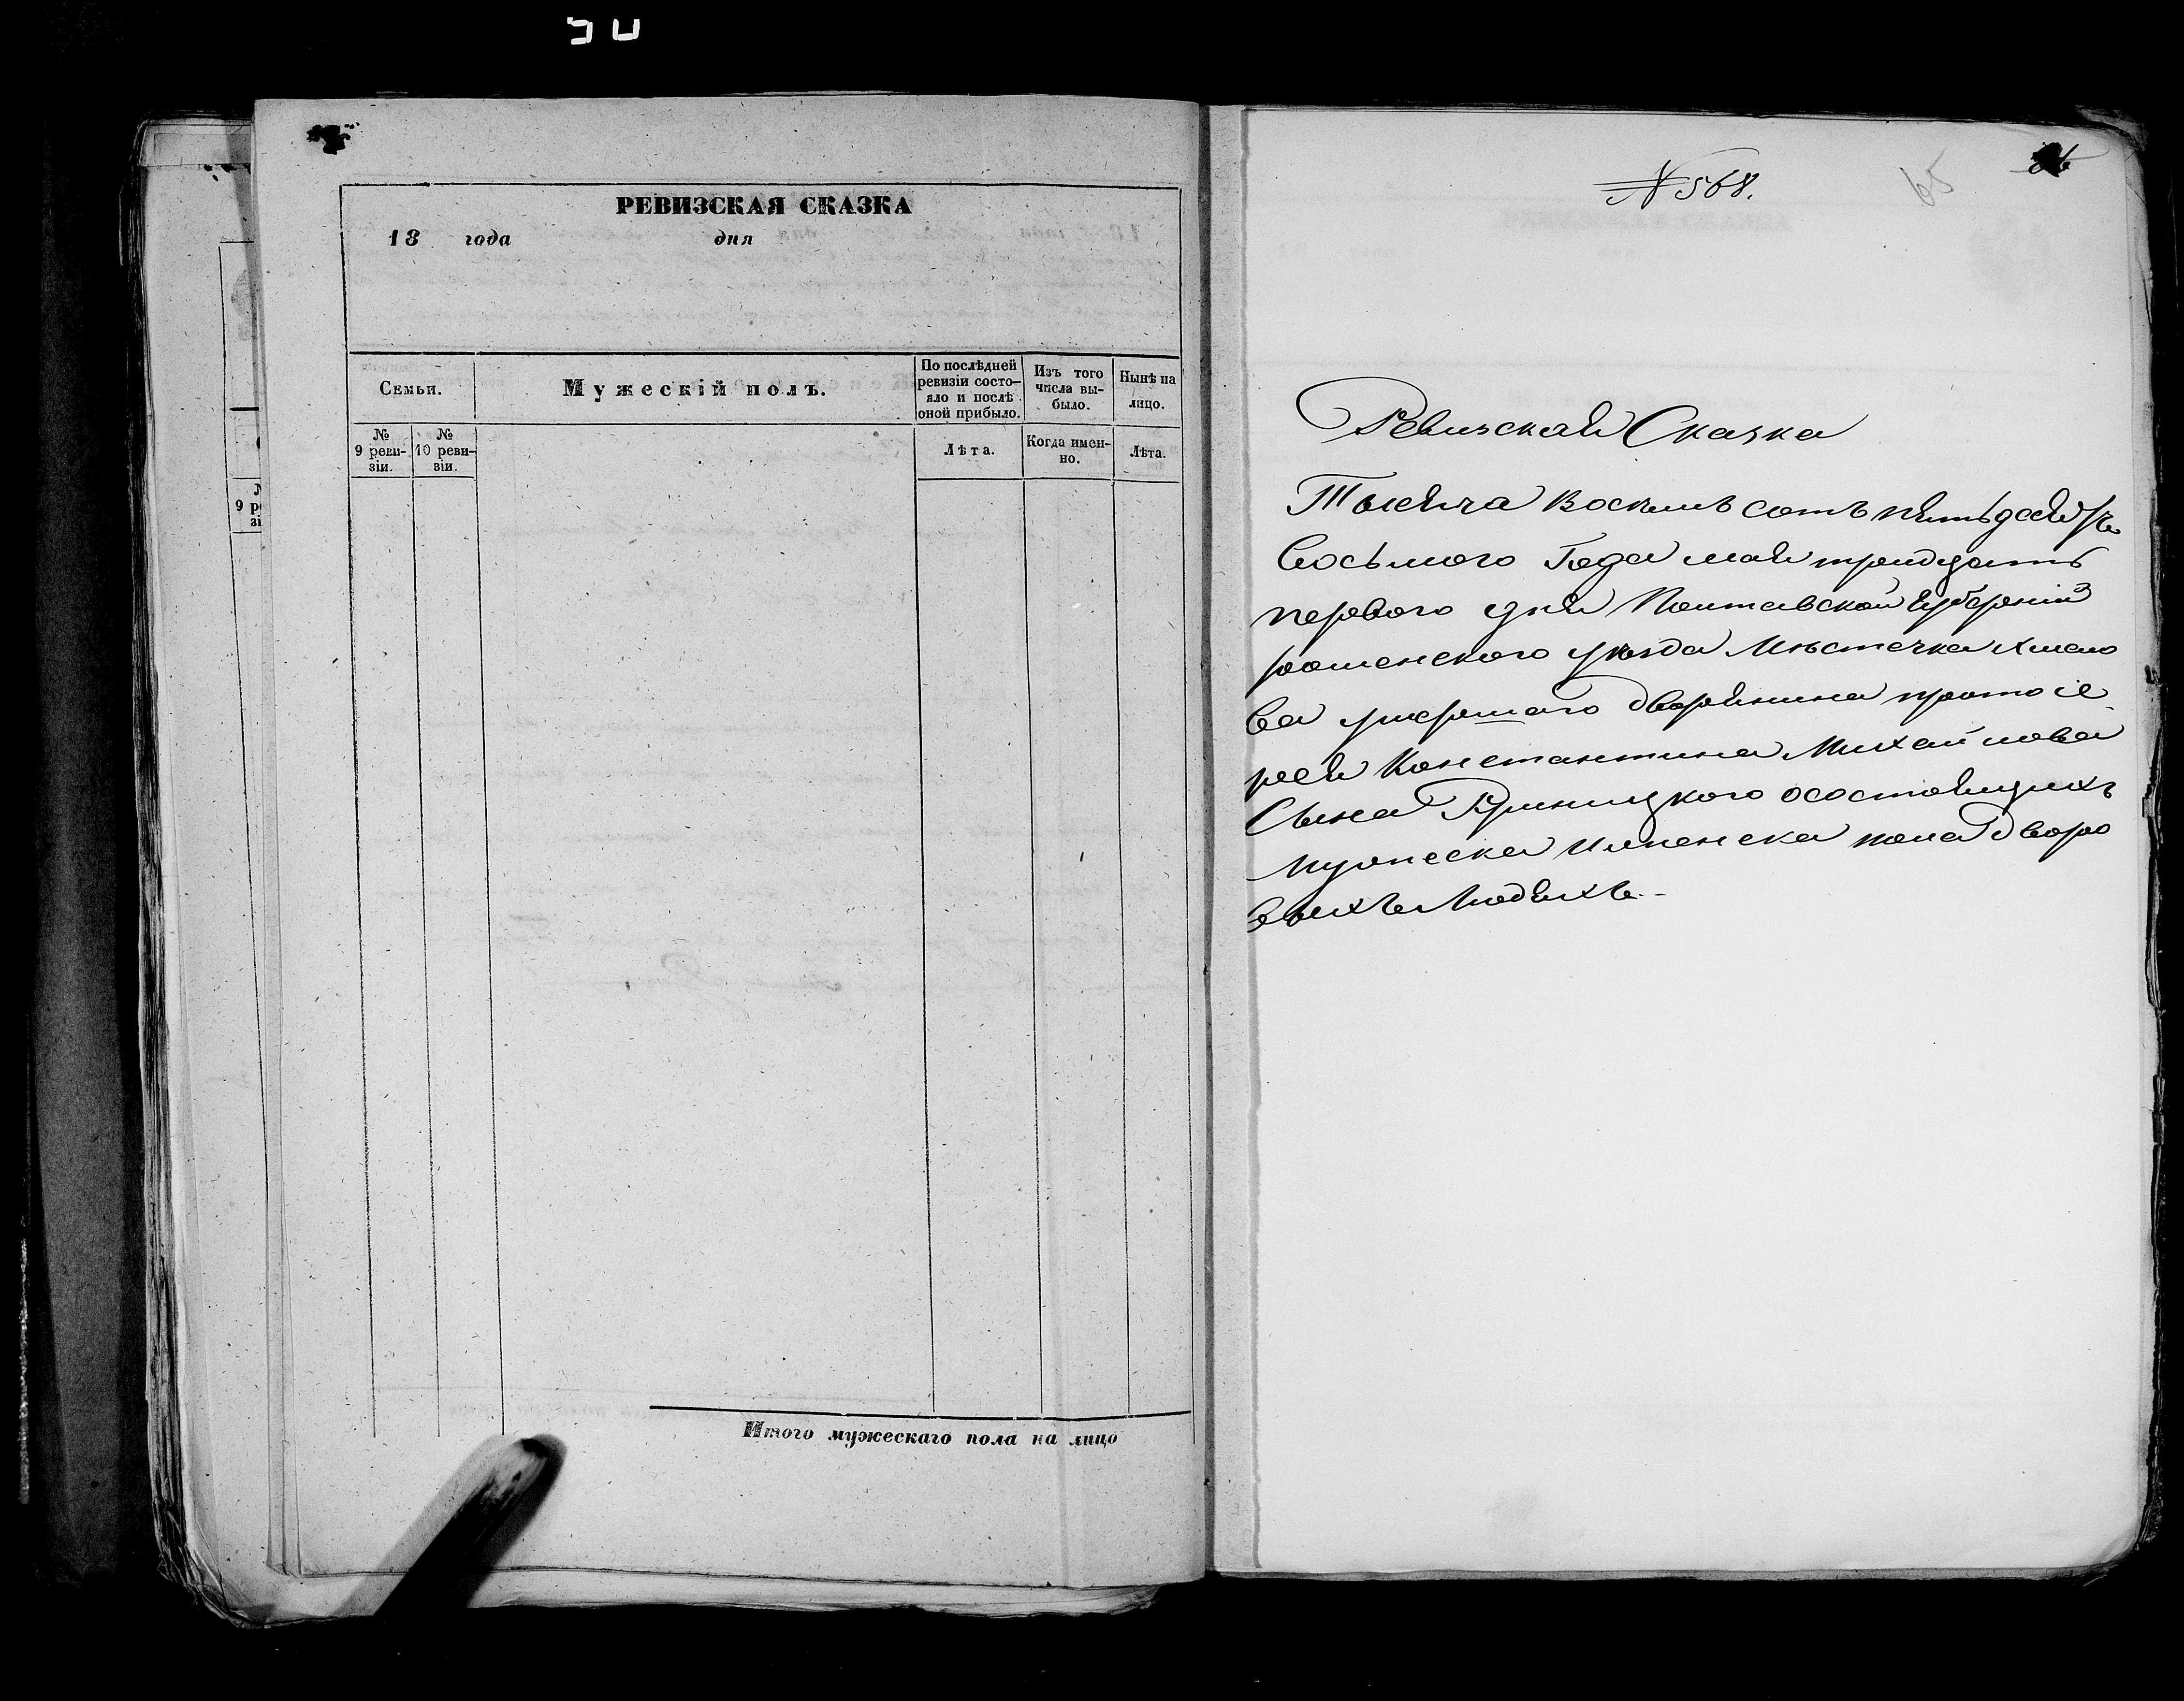 РЕВИЗСКАЯ СКАЗКА
18 года дня
Семьи.
Мужескій полъ.
По послѣдней
ревизіи состо-
яло и послѣ
оной прибыло.
Изъ того
числа вы-
было.
Нынѣ на
лицо.
№
9 реви-
зіи.
№
10 реви-
зіи.
Лѣта.
Когда имен-
но.
Лѣта.
Итого мужескаго пола на лицо
№ 568.
65
Ревизская Сказка
Тысяча Восемь сотъ пятьдесятъ
Восьмого Года мая тридцать
первого дня Полтавской Губерніи
роменского уѣзда Мѣстечка Хмело
ва умершаго дворянина протоіе
рея Константина Михайлова
Сына Криницкого осостоящихъ
мужеска иженска пола дворо
выхъ Людяхъ